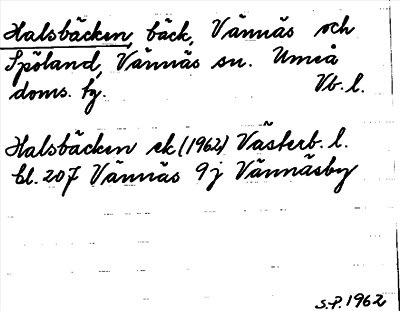 Halsbäcken, bäck, Vännäs och
Spöland, Vännäs sn. Umeå
doms. fg. Vb. l.
Halsbäcken ek (1962) Västerb. l.
bl. 207 Vännäs 9j Vännäsby
S.P. 1962